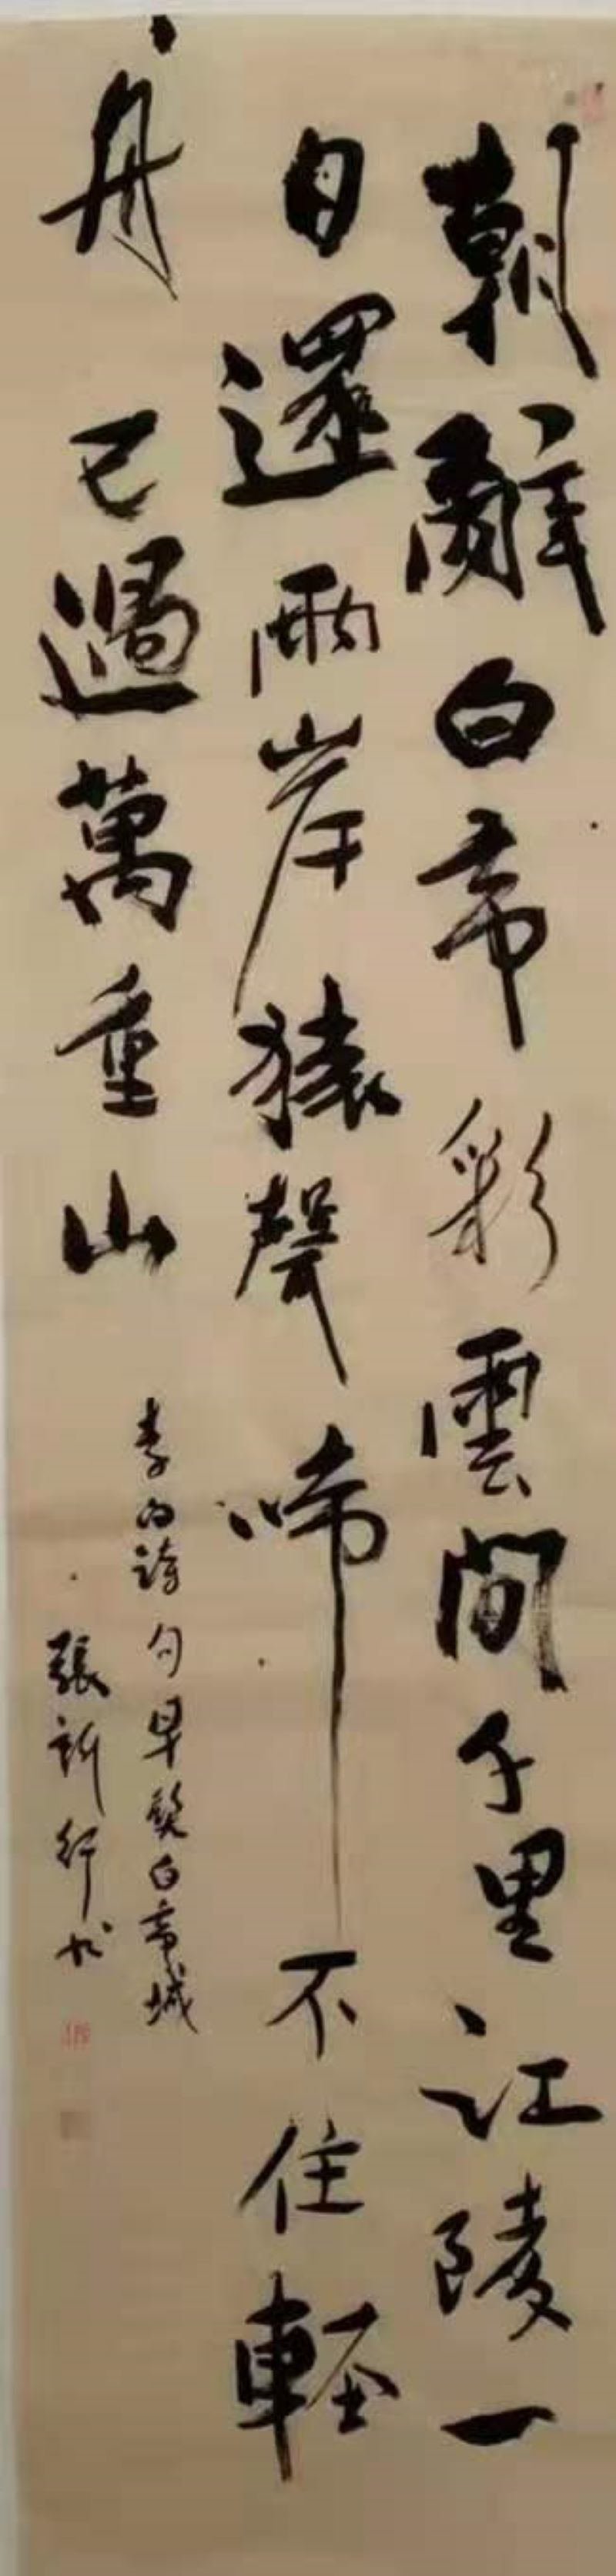 朝辭白帝彩雲間千里江陵一
日還兩岸猿聲啼不住輕
舟已過萬重山
李白詩句早發白帝城
張新行书